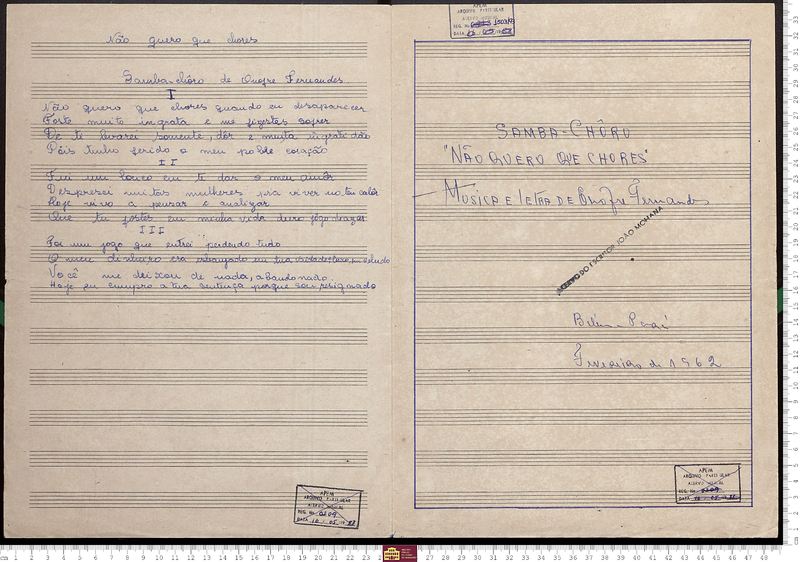 Não quero que chores
Samba-chôro de Onofre Fernandes
I
Não quero que chores quando eu desaparecer
Foste muito ingrata e me fizestes sofrer
De ti levarei somente, dôr e muita ingratidão
Pois tenho ferido o meu pobre coração
II
Fui um louco em te dar o meu amôr
Desprezei muitas mulheres pra viver no teu calôr
Hoje vivo a pensar e analizar
Que tu fostes em minha vida duro jogo de azar
III
Foi um jogo que entrei perdendo tudo
O meu dinheiro era esbanjado em tua
Você me deixou de nada, abandonado.
Hoje eu cumpro a tua sentença porque sou resignado
APEM
ARQUIVO PARTICULAR
ACERVO MUSICAL
REG. No 0209
DATA 10 / 05 / 19 88
APEM
ARQUIVO PARTICULAR
ACERVO MUSICAL
REG. No
DATA
SAMBA-CHÔRO
"NÃO QUERO QUE CHORES"
MUSICA E LETRA DE Onofre Fernandes
ACERVO DO ESCRITOR JOÃO MOHANA
Belém - Pará
Fevereiro de 1962
APEM
ARQUIVO PARTICULAR
ACERVO MUSICAL
REG. No 0209
DATA 10 / 05 / 19 88